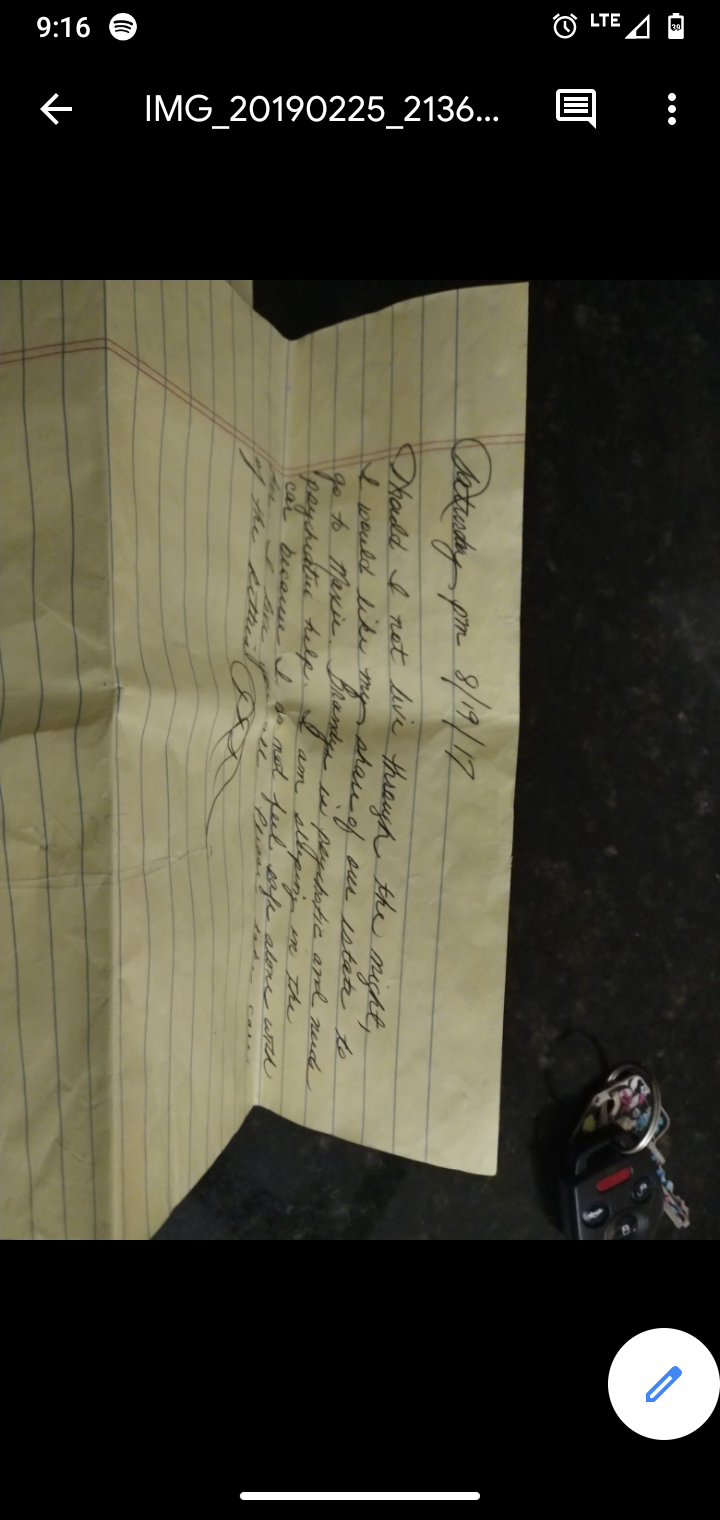 9:16
LTE
39
IMG_20190225_2136...
Saturday pm 8/19/17
Should I not live through the night,
I would like my share of our estate to
go to Maxie. Brandyn is psychotic and needs
psychiatric help. I am sleeping in the
car because I do not feel safe alone with
I love you all Please take care
of the